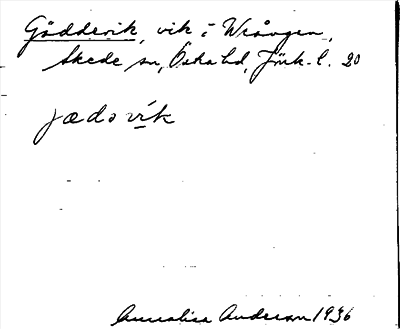 Gädderik, vik i Wrången,
Skede sn, Östra hd, Jönk. l. 20
jædəvik
Annalisa Anderson 1936